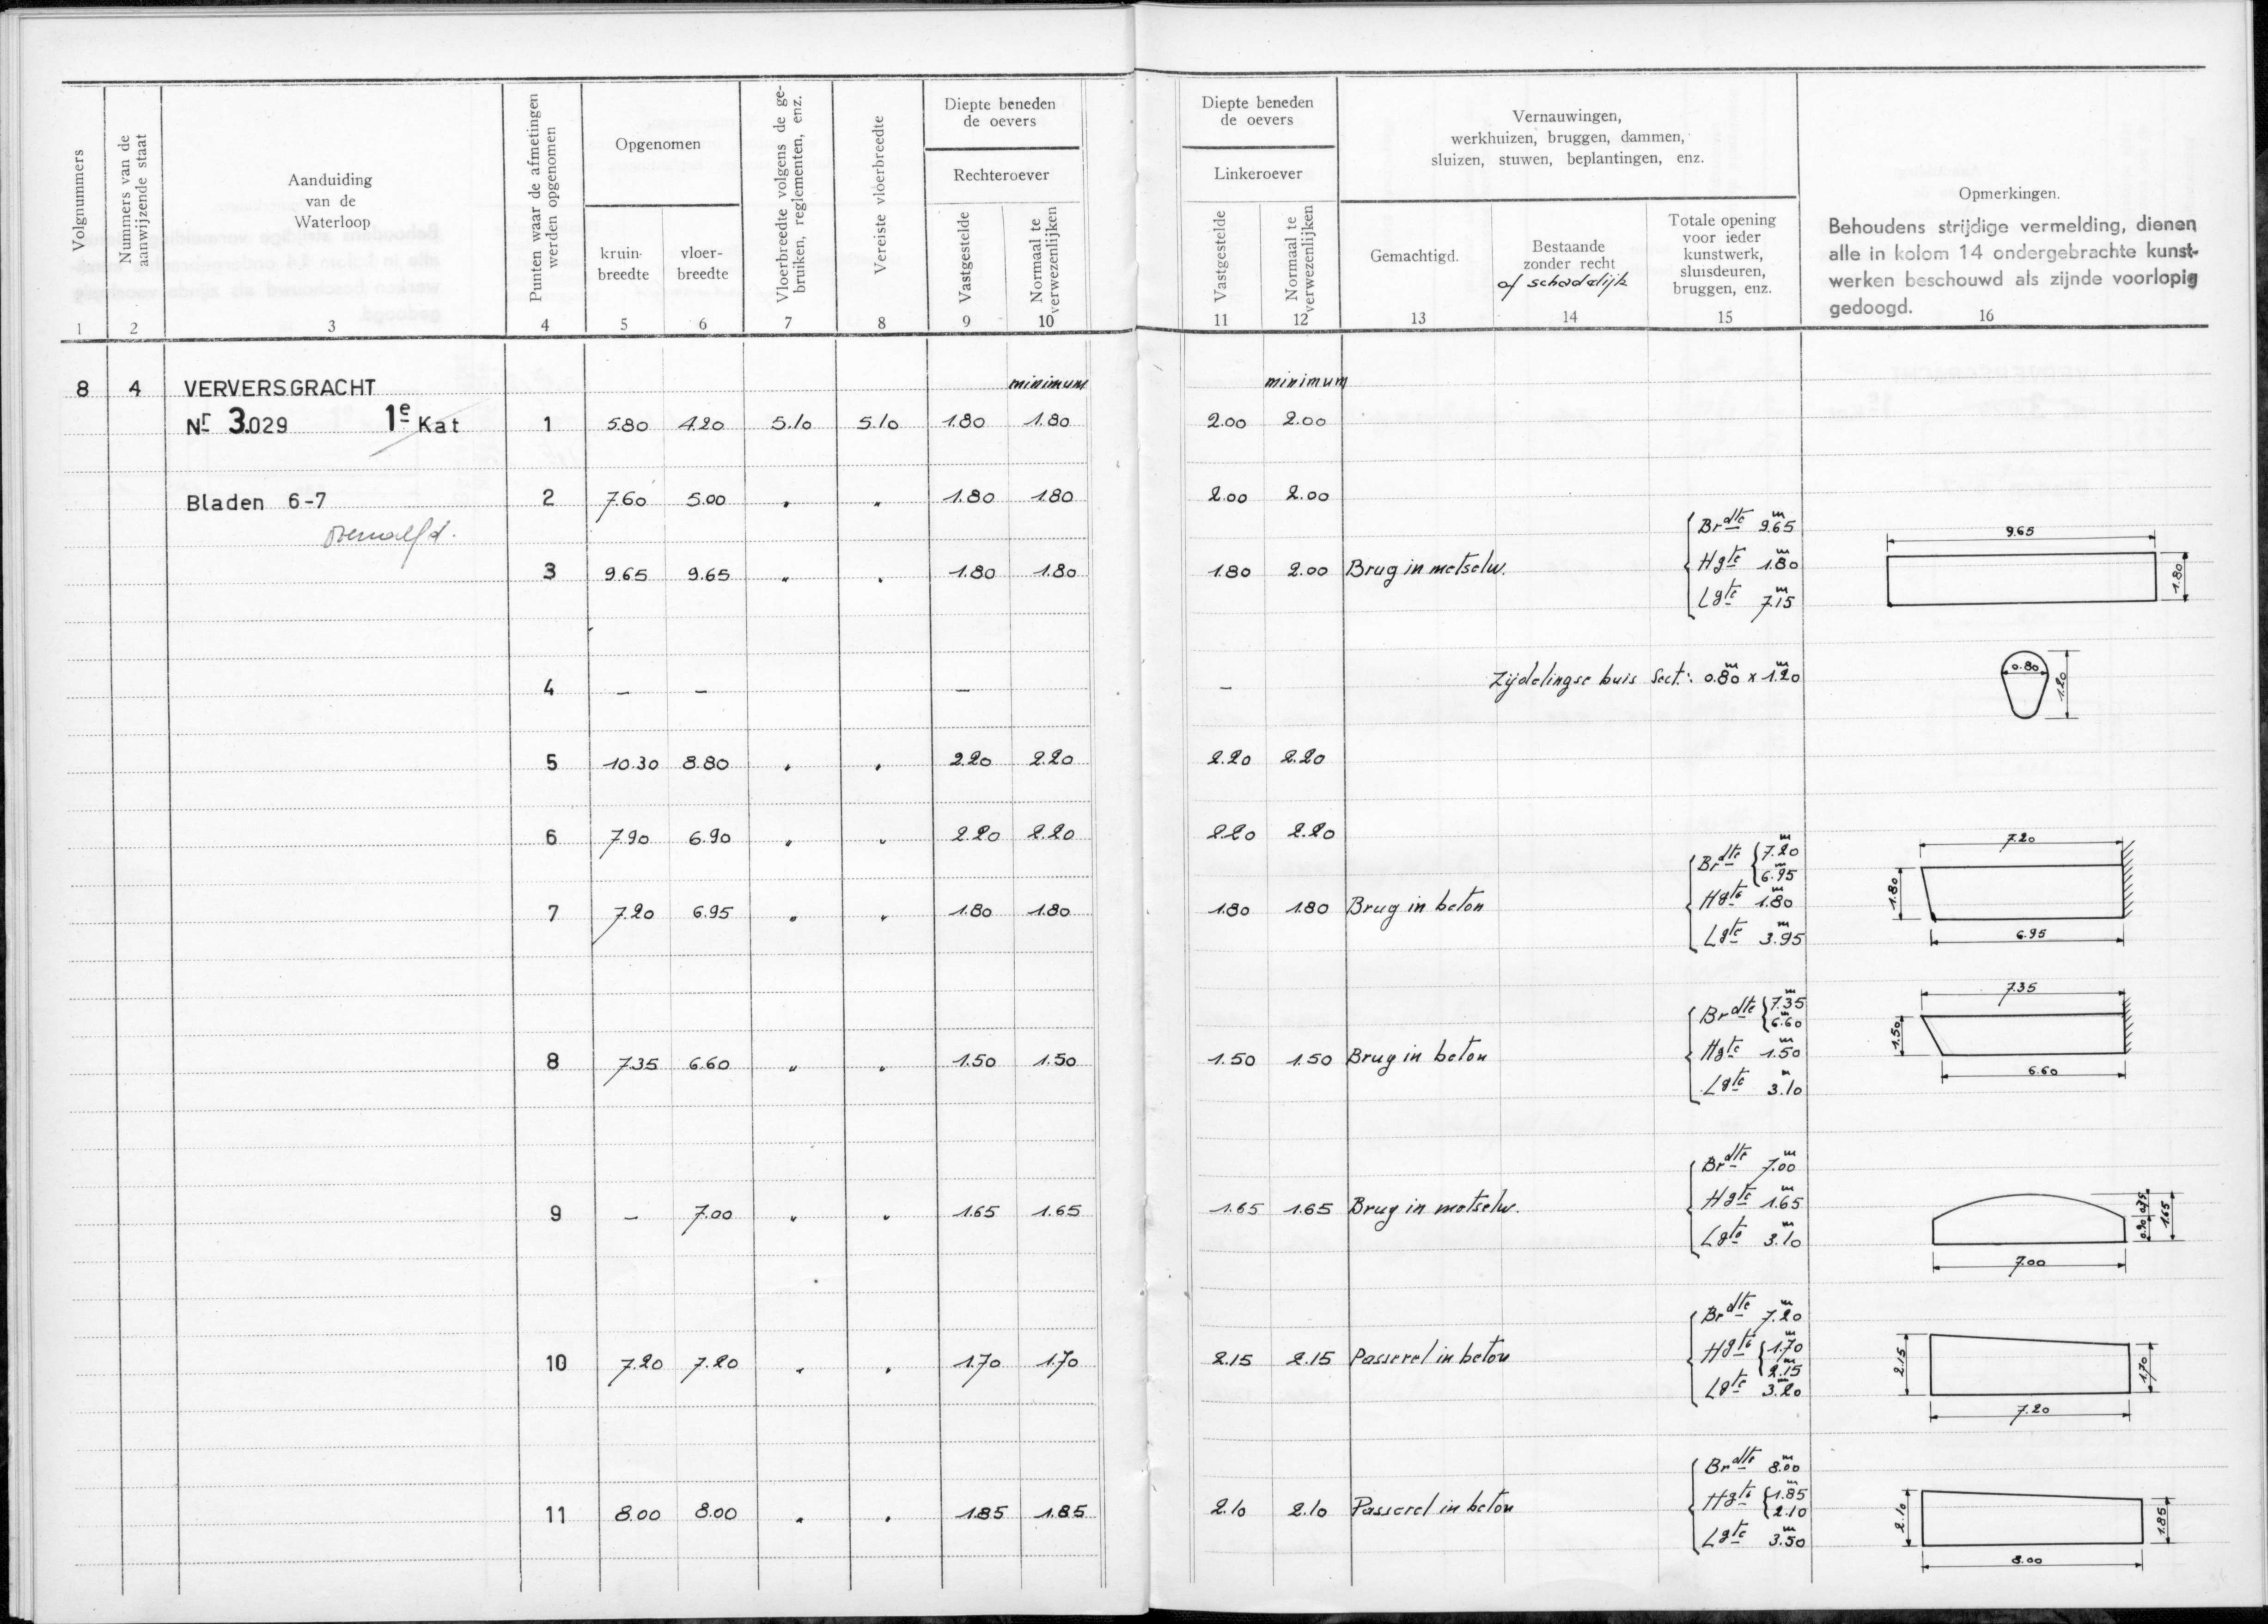 Volgnummers
Nummers van de aanwijzende staat
Aanduiding
van de
Waterloop
Punten waar de afmetingen werden opgenomen
Opgenomen
kruin-breedte
vloer-breedte
Vloerbreedte volgens de ge-bruiken, reglementen, enz.
Vereiste vloerbreedte
Diepte beneden
de oevers
Rechteroever
Vastgestelde
Normaal te verwezenlijken
Diepte beneden
de oevers
Linkeroever
Vastgestelde
Normaal te verwezenlijken
Vernauwingen,
werkhuizen, bruggen, dammen,
sluizen, stuwen, beplantingen, enz.
Gemachtigd.
Bestaande
zonder recht
of schadelijk
Totale opening
voor ieder
kunstwerk,
sluisdeuren,
bruggen, enz.
Opmerkingen.
Behoudens strijdige vermelding, dienen
alle in kolom 14 ondergebrachte kunst-
werken beschouwd als zijnde voorlopig
gedoogd.
1 2 3 4 5 6 7 8 9 10 11 12 13 14 15 16
8 4 VERVERSGRACHT minimum minimum
Nr 3.029 1e Kat 1 5.80 4.20 5.10 5.10 1.80 1.80 2.00 2.00
Bladen 6-7 2 7.60 5.00 " " 1.80 1.80 2.00 2.00
Brdte 9.65m
3 9.65 9.65 " " 1.80 1.80 1.80 2.00 Brug in metselw. Hgte 1.80m
Lgte 7.15m
9.65
1.80
4 — — — — Zijdelingse buis Sect.: 0.80m x 1.20m
0.80
1.20
5 10.30 8.80 " " 2.20 2.20 2.20 2.20
6 7.90 6.90 " " 2.20 2.20 2.20 2.20
Brdte { 7.20m
6.95m
7 7.20 6.95 " " 1.80 1.80 1.80 1.80 Brug in beton Hgte 1.80m
Lgte 3.95m
7.20
1.80
6.95
Brdte { 7.35m
6.60m
8 7.35 6.60 " " 1.50 1.50 1.50 1.50 Brug in beton Hgte 1.50m
Lgte 3.10m
7.35
1.50
6.60
Brdte 7.00m
9 — 7.00 " " 1.65 1.65 1.65 1.65 Brug in metselw. Hgte 1.65m
Lgte 3.10m
0.90 0.75
1.65
7.00
Brdte 7.20m
10 7.20 7.20 " " 1.70 1.70 2.15 2.15 Passerel in beton Hgte { 1.70m
2.15m
Lgte 3.20m
2.15
1.70
7.20
Brdte 8.00m
11 8.00 8.00 " " 1.85 1.85 2.10 2.10 Passerel in beton Hgte { 1.85m
2.10
Lgte 3.50m
2.10
1.85
8.00